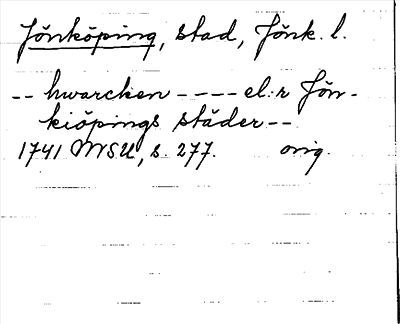 Jönköping, stad, Jönk. l.
-- hwarcken ---- el:r Jön-
kiöpings städer --
1741 MSU, s. 277. orig.